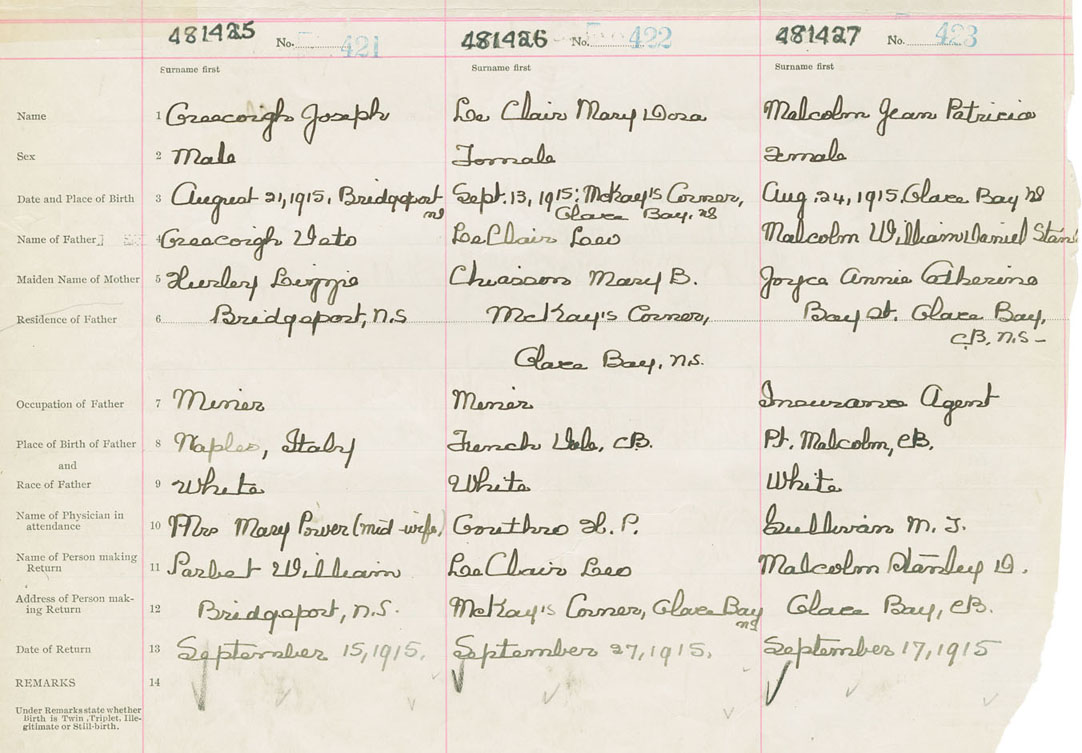 481425 No. 421 481426 No. 422 481427 No. 423
Surname first Surname first Surname first
Name 1 Greecorigh Joseph Le Clair Mary Dora Malcolm Jean Patricia
Sex 2 Male Female Female
Date and Place of Birth 3 August 21, 1915, Bridgeport NS Sept. 13, 1915; McKay's Corner, Aug. 24, 1915, Glace Bay NS
Glace Bay, NS
Name of Father 4 Greecorigh Vato LeClair Leo Malcolm William Daniel Stan
Maiden Name of Mother 5 Hurley Lizzie Chiasson Mary B. Joyce Annie Catherine
Residence of Father 6 Bridgeport, N.S McKay's Corner, Bay St. Glace Bay,
C.B, N.S-
Glace Bay, N.S.
Occupation of Father 7 Miner Miner Insurance Agent
Place of Birth of Father 8 Naples, Italy French Vale, CB. Pt. Malcolm, CB.
and
Race of Father 9 White White White
Name of Physician in
attendance 10 Mrs Mary Power (mid-wife) Gouthro H. P. Sullivan M. J.
Name of Person making
Return 11 William LeClair Leo Malcolm Stanley D.
Address of Person mak-
ing Return 12 Bridgeport, N.S. McKay's Corner, Glace Bay NS Glace Bay, CB.
Date of Return 13 September 15, 1915. September 27, 1915. September 17, 1915
REMARKS 14
Under Remarks state whether
Birth is Twin, Triplet, Ille-
gitimate or Still-birth.